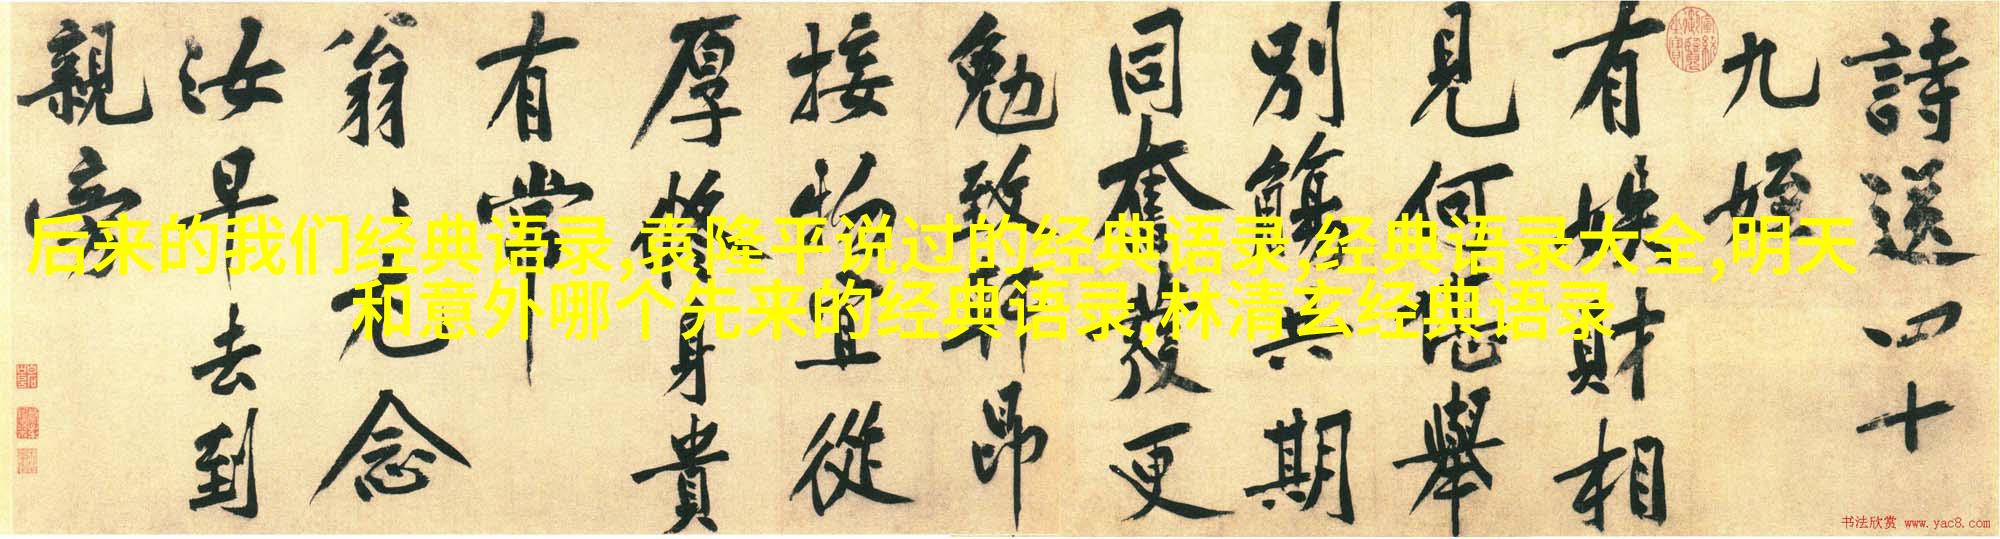 詩送四十
九姪
有姝財相
見何堪舉
別觴共期
同奮發更
勉致軒昂
接物宜從
厚將身貴
有常
翁〻尤念
汝早去到
親旁
后来的我们经典语录,袁隆平说过的经典语录,经典语录大全,明天
和意外哪个先来的经典语录,林清玄经典语录
书法欣赏 www.yac8.com